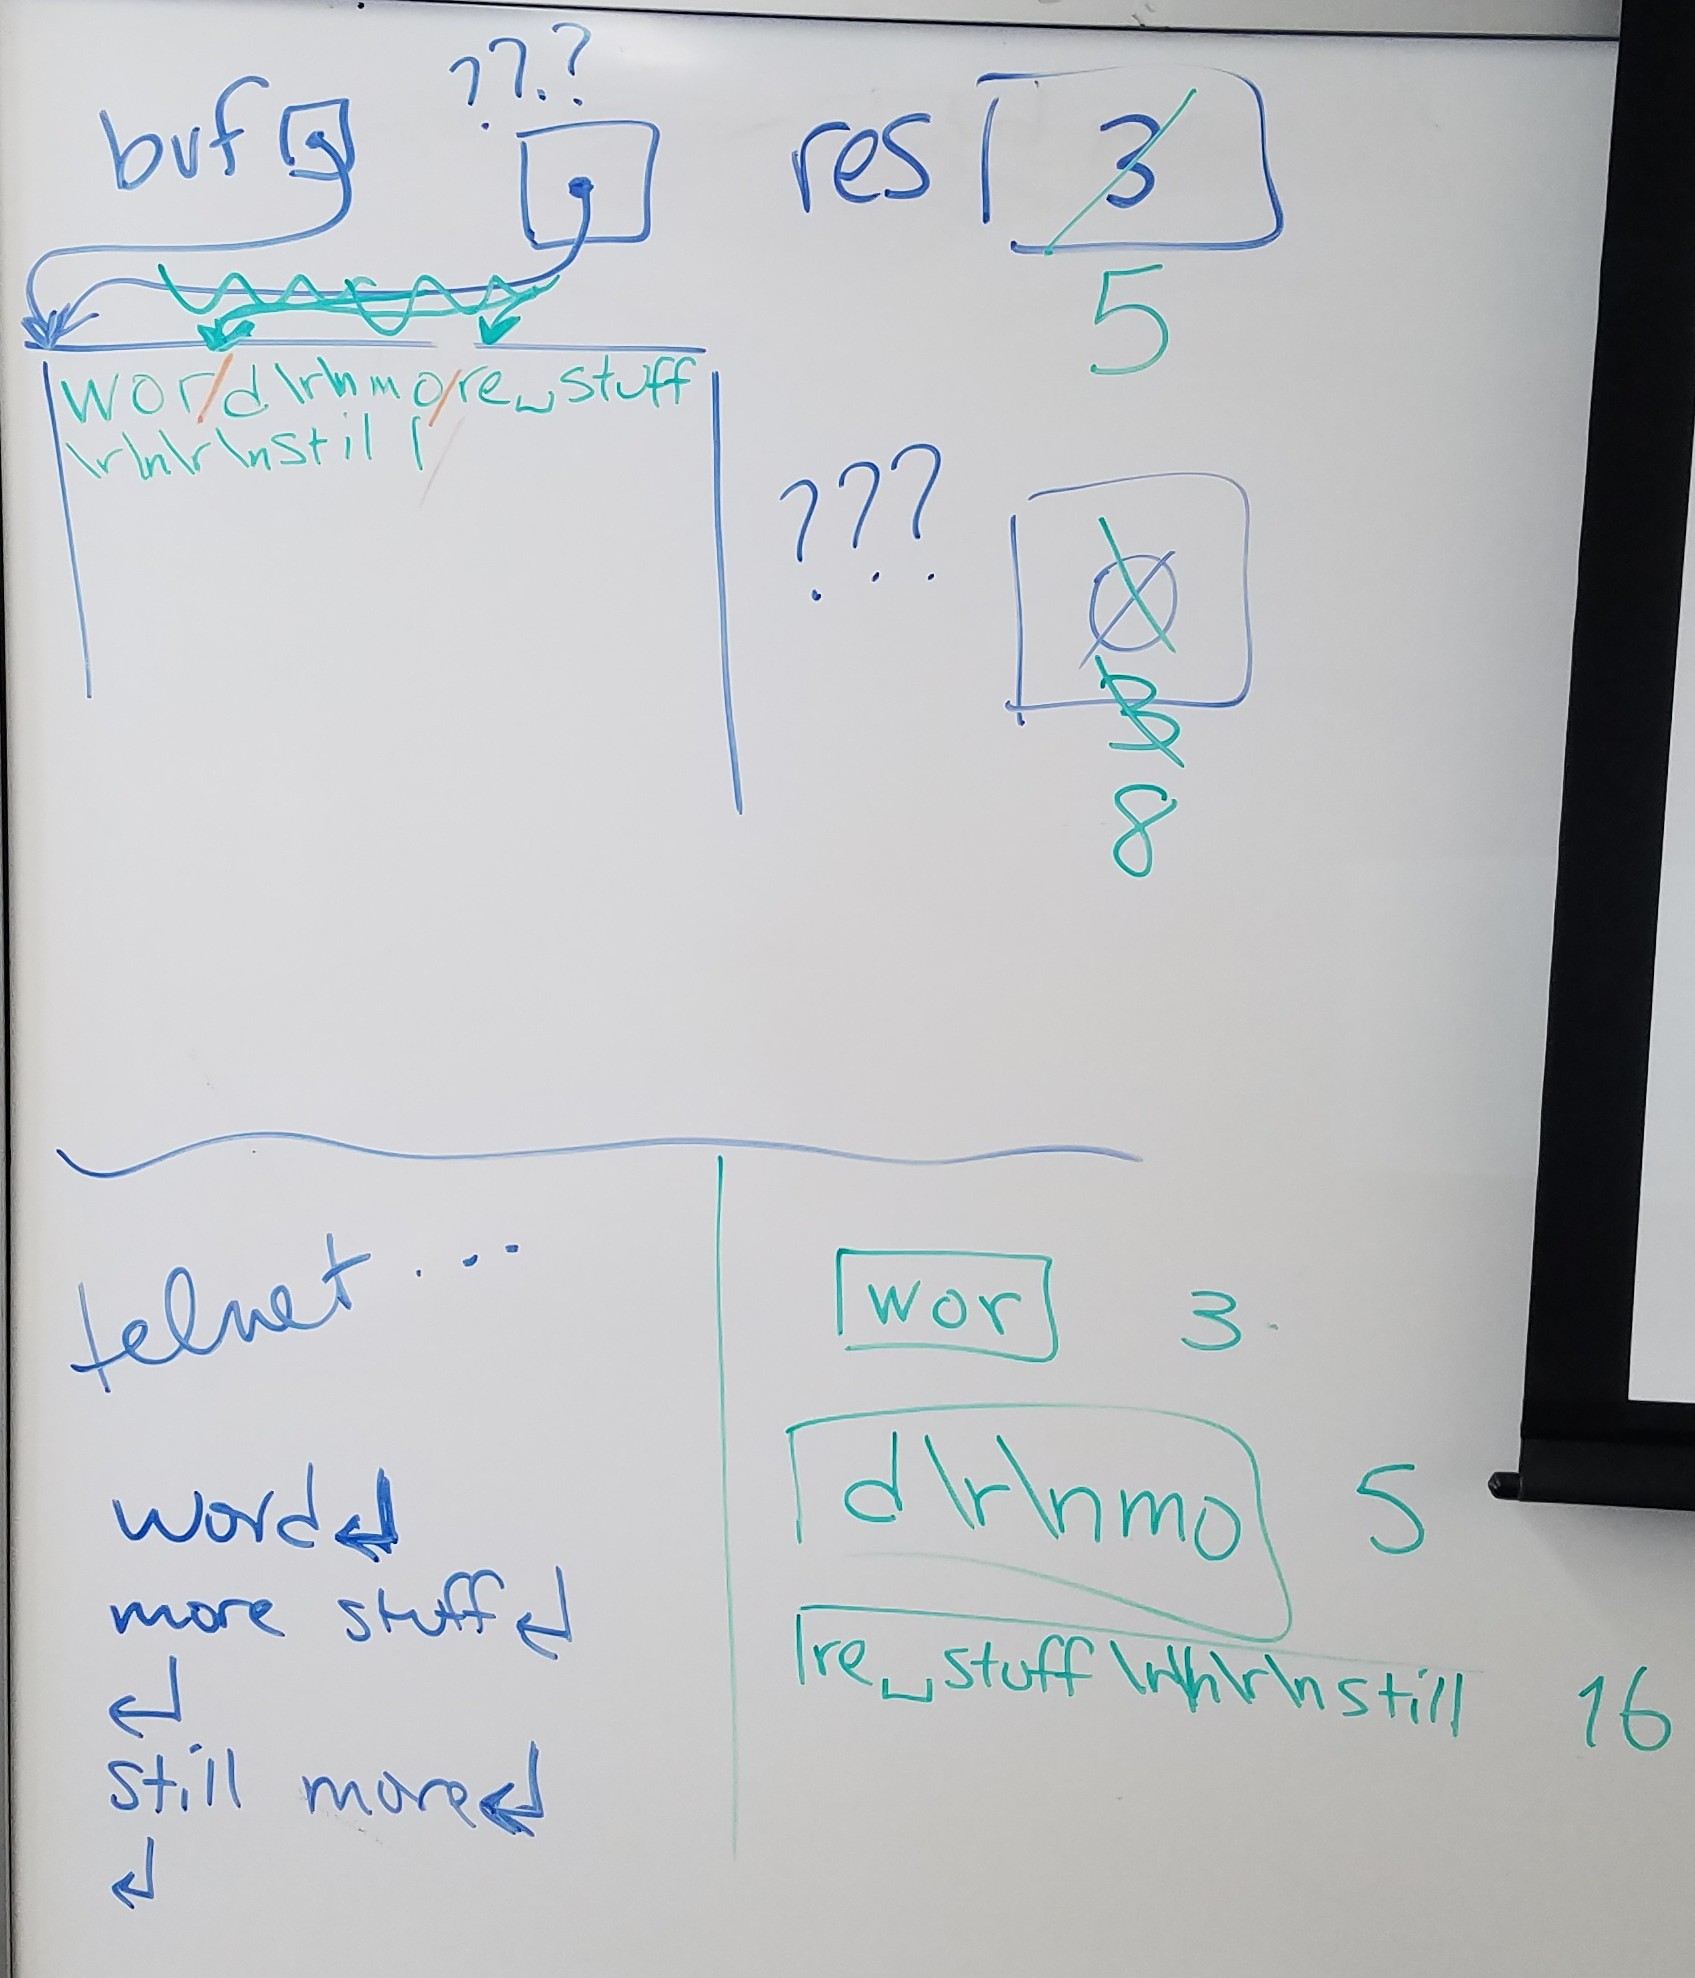 buf ???
res 3
5
word\r\nmore␣stuff
\r\n\r\nstill
???
0
3
8
telnet ...
word↵
more stuff↵
↵
still more↵
↵
wor 3
d\r\nmo 5
re␣stuff\r\n\r\nstill 16